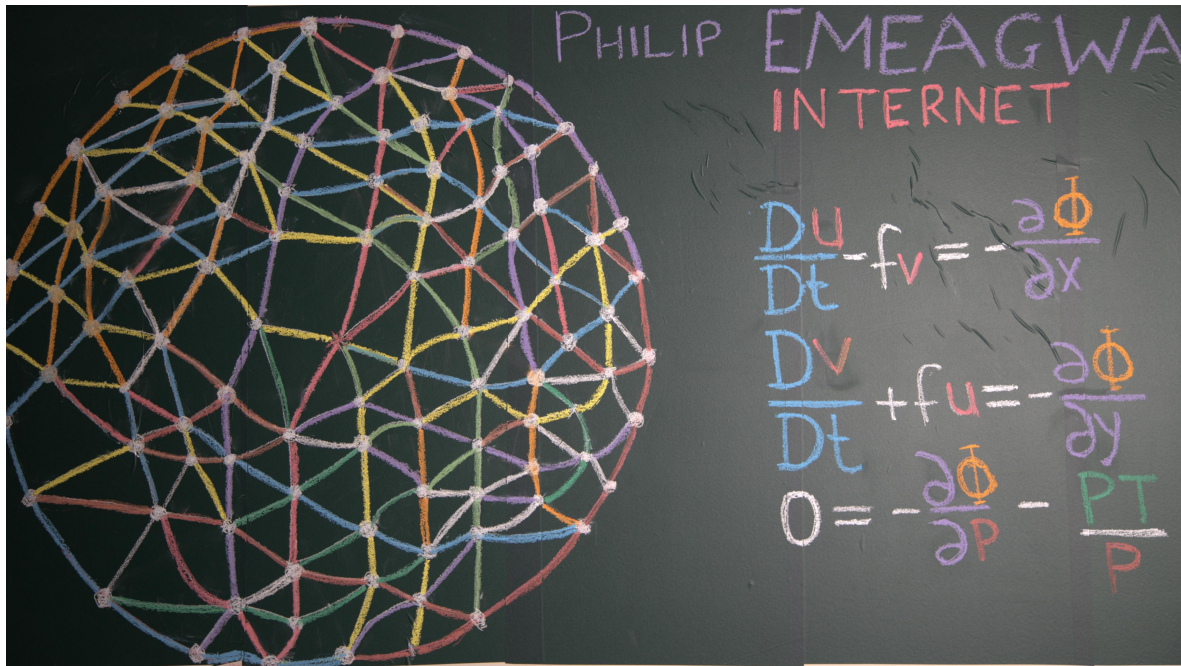 PHILIP EMEAGWA
INTERNET
Du/Dt - fv = - ∂Φ/∂x
Dv/Dt + fu = - ∂Φ/∂y
0 = - ∂Φ/∂P - PT/P